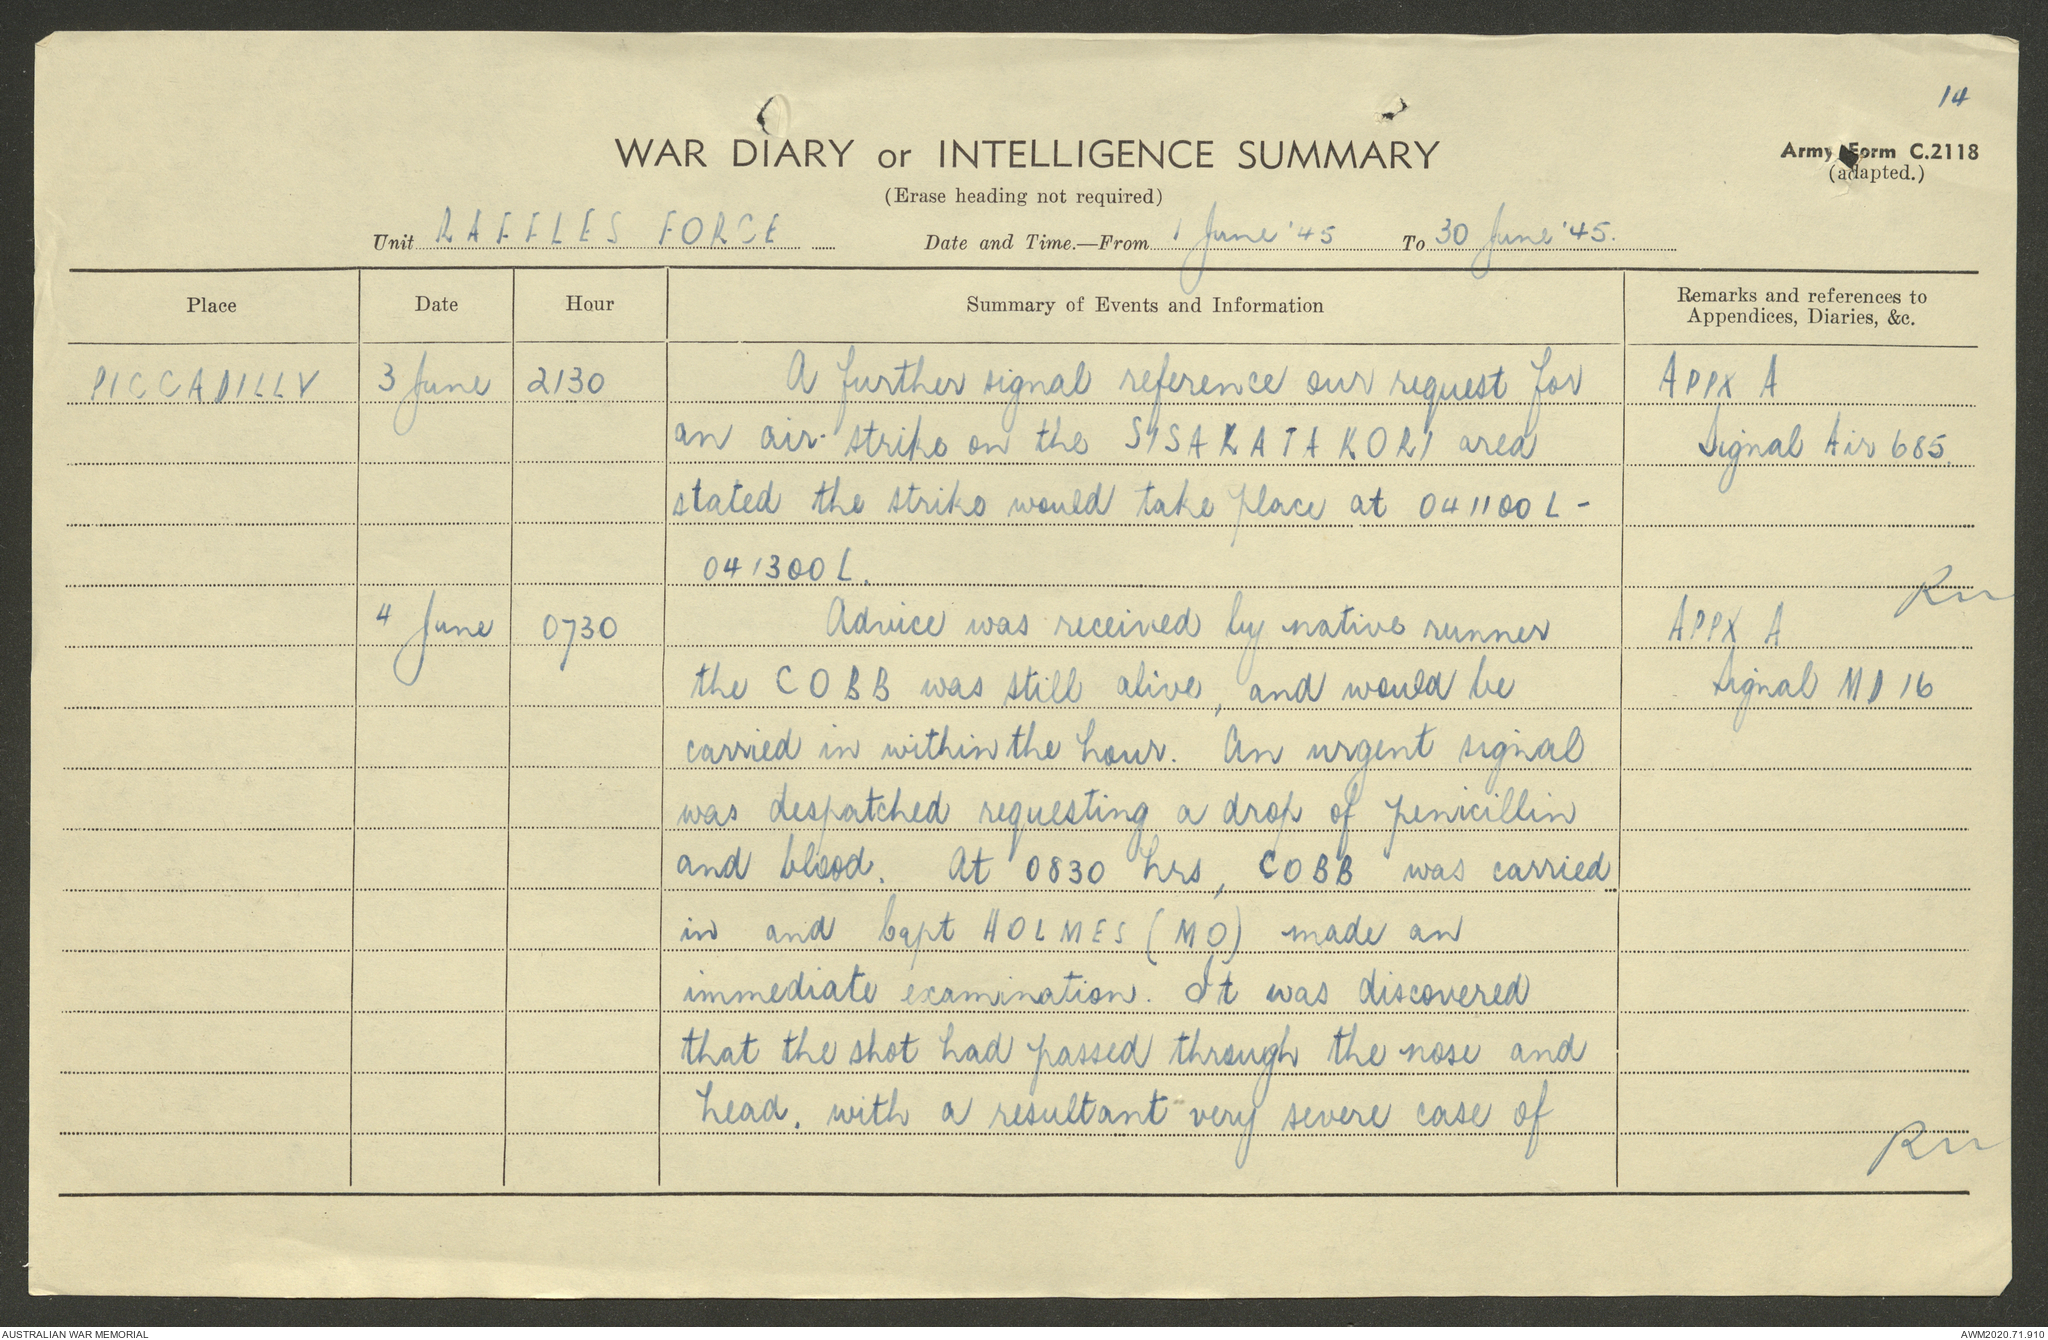 14
WAR DIARY or INTELLIGENCE SUMMARY
Army Form C.2118
(adapted.)
(Erase heading not required)
Unit RAFFLES FORCE Date and Time.—From 1 June '45 To 30 June '45.
Place Date Hour Summary of Events and Information Remarks and references to Appendices, Diaries, &c.
PICCADILLY 3 June 2130 A further signal reference our request for APPX A
an air strike on the SISAKATAKORI area Signal Air 685
stated the strike would take place at 041100L -
041300L.
4 June 0730 Advice was received by native runner APPX A
the COBB was still alive, and would be Signal MD 16
carried in within the hour. An urgent signal
was despatched requesting a drop of penicillin
and blood. At 0830 hrs, COBB was carried
in and Capt HOLMES (MO) made an
immediate examination. It was discovered
that the shot had passed through the nose and
head, with a resultant very severe case of
AUSTRALIAN WAR MEMORIAL
AWM2020.71.910